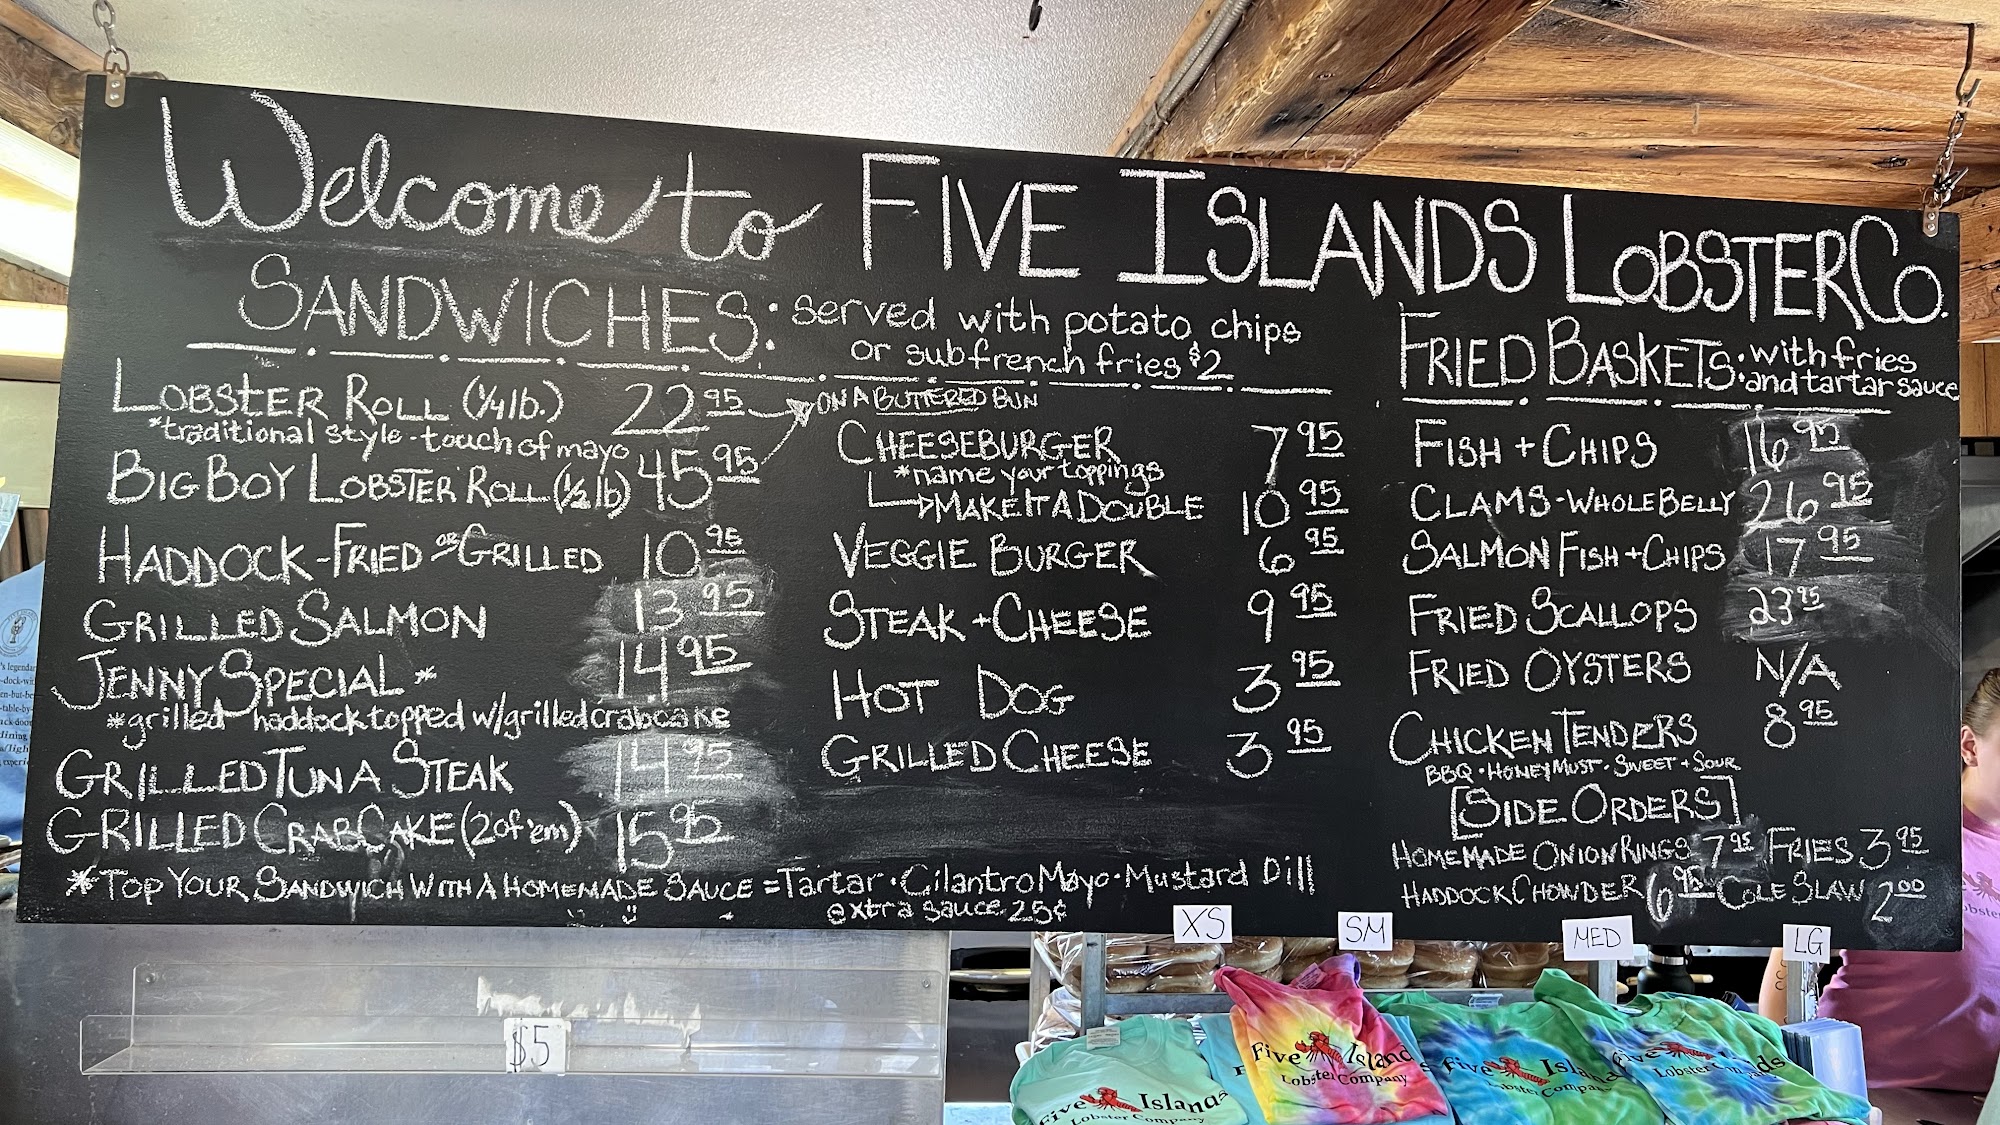 Welcome to FIVE ISLANDS LOBSTER CO.
SANDWICHES: served with potato chips
or sub french fries $2
LOBSTER ROLL (1/4 lb.) 22 95
*traditional style - touch of mayo
BIG BOY LOBSTER ROLL (1/2 lb) 45 95
HADDOCK - FRIED OR GRILLED 10 95
GRILLED SALMON 13 95
JENNY SPECIAL * 14 95
*grilled haddock topped w/grilled crabcake
GRILLED TUNA STEAK 14 95
GRILLED CRAB CAKE (2 of 'em) 15 95
ON A BUTTERED BUN
CHEESEBURGER 7 95
*name your toppings
MAKE IT A DOUBLE 10 95
VEGGIE BURGER 6 95
STEAK + CHEESE 9 95
HOT DOG 3 95
GRILLED CHEESE 3 95
*TOP YOUR SANDWICH WITH A HOMEMADE SAUCE = Tartar · Cilantro Mayo · Mustard Dill
extra sauce .25¢
FRIED BASKETS: with fries
and tartar sauce
FISH + CHIPS 16 95
CLAMS - WHOLE BELLY 26 95
SALMON FISH + CHIPS 17 95
FRIED SCALLOPS 23 95
FRIED OYSTERS N/A
CHICKEN TENDERS 8 95
BBQ · HONEY MUST · SWEET + SOUR
[SIDE ORDERS]
HOMEMADE ONION RINGS 7 95 FRIES 3 95
HADDOCK CHOWDER 6 95 COLE SLAW 2 00
XS
SM
MED
LG
$5
Five Islands
Lobster Company
Five Islands
Lobster Company
Five Islands
Lobster Company
Five Islands
Lobster Company